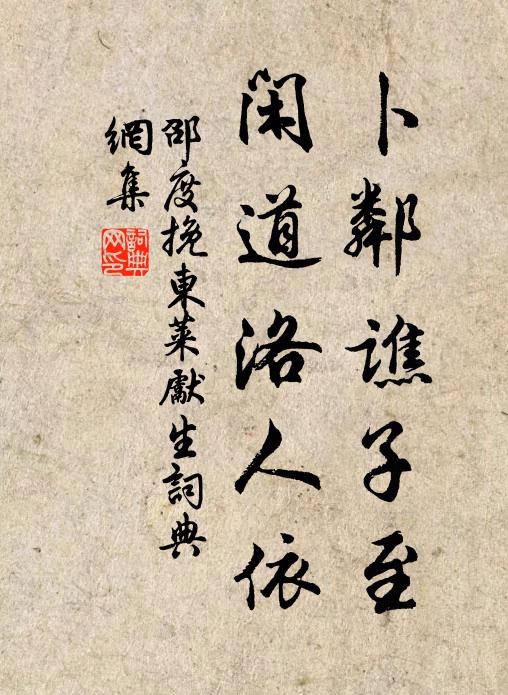 卜鄰譙子至
閑道洛人依
邵度挽東萊獻生詞典
網集
詞典
网印